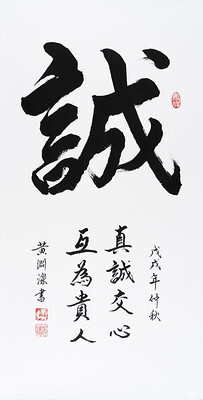 誠
真誠交心
互為貴人
戊戌年仲秋
黄淵深書